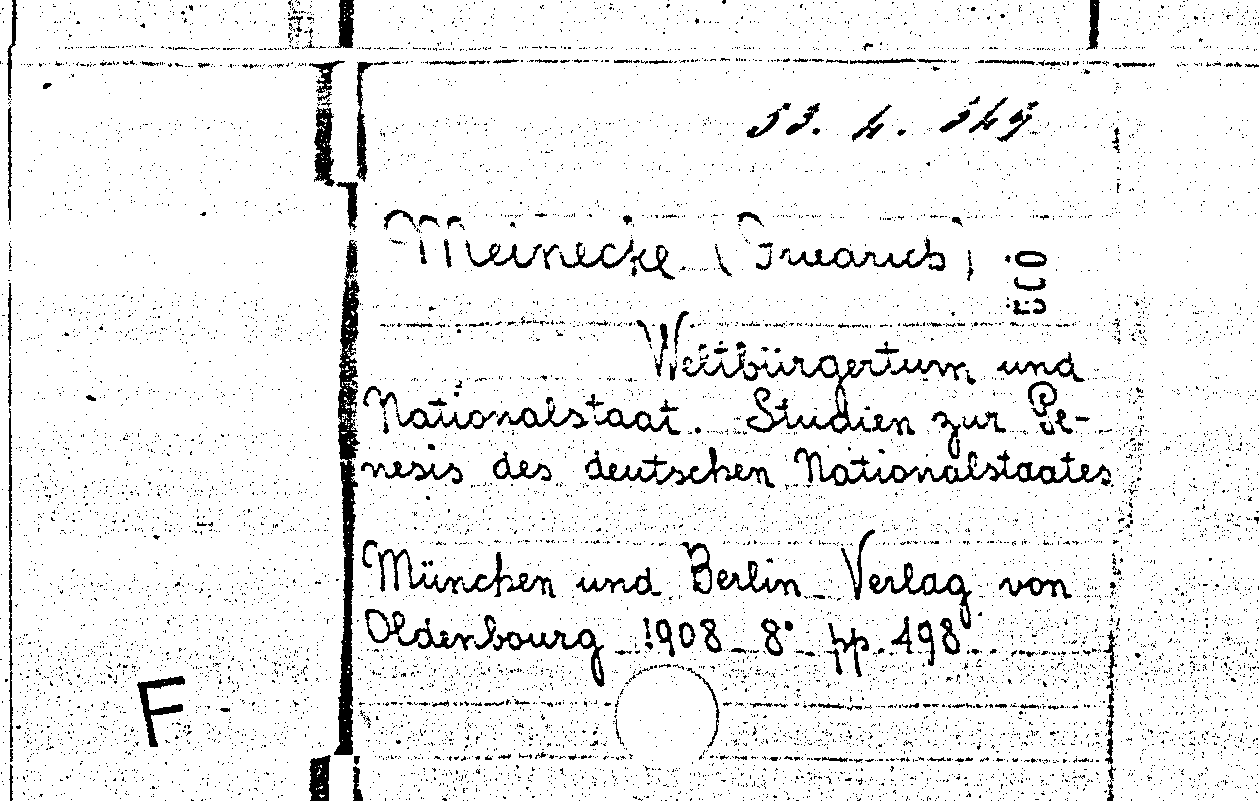 53. 4. 349
Meinecke (Friedrich)
ECO
Weltbürgertum und
Nationalstaat. Studien zur Ge-
nesis des deutschen Nationalstaates
München und Berlin Verlag von
Oldenbourg 1908 8° pp. 498
F